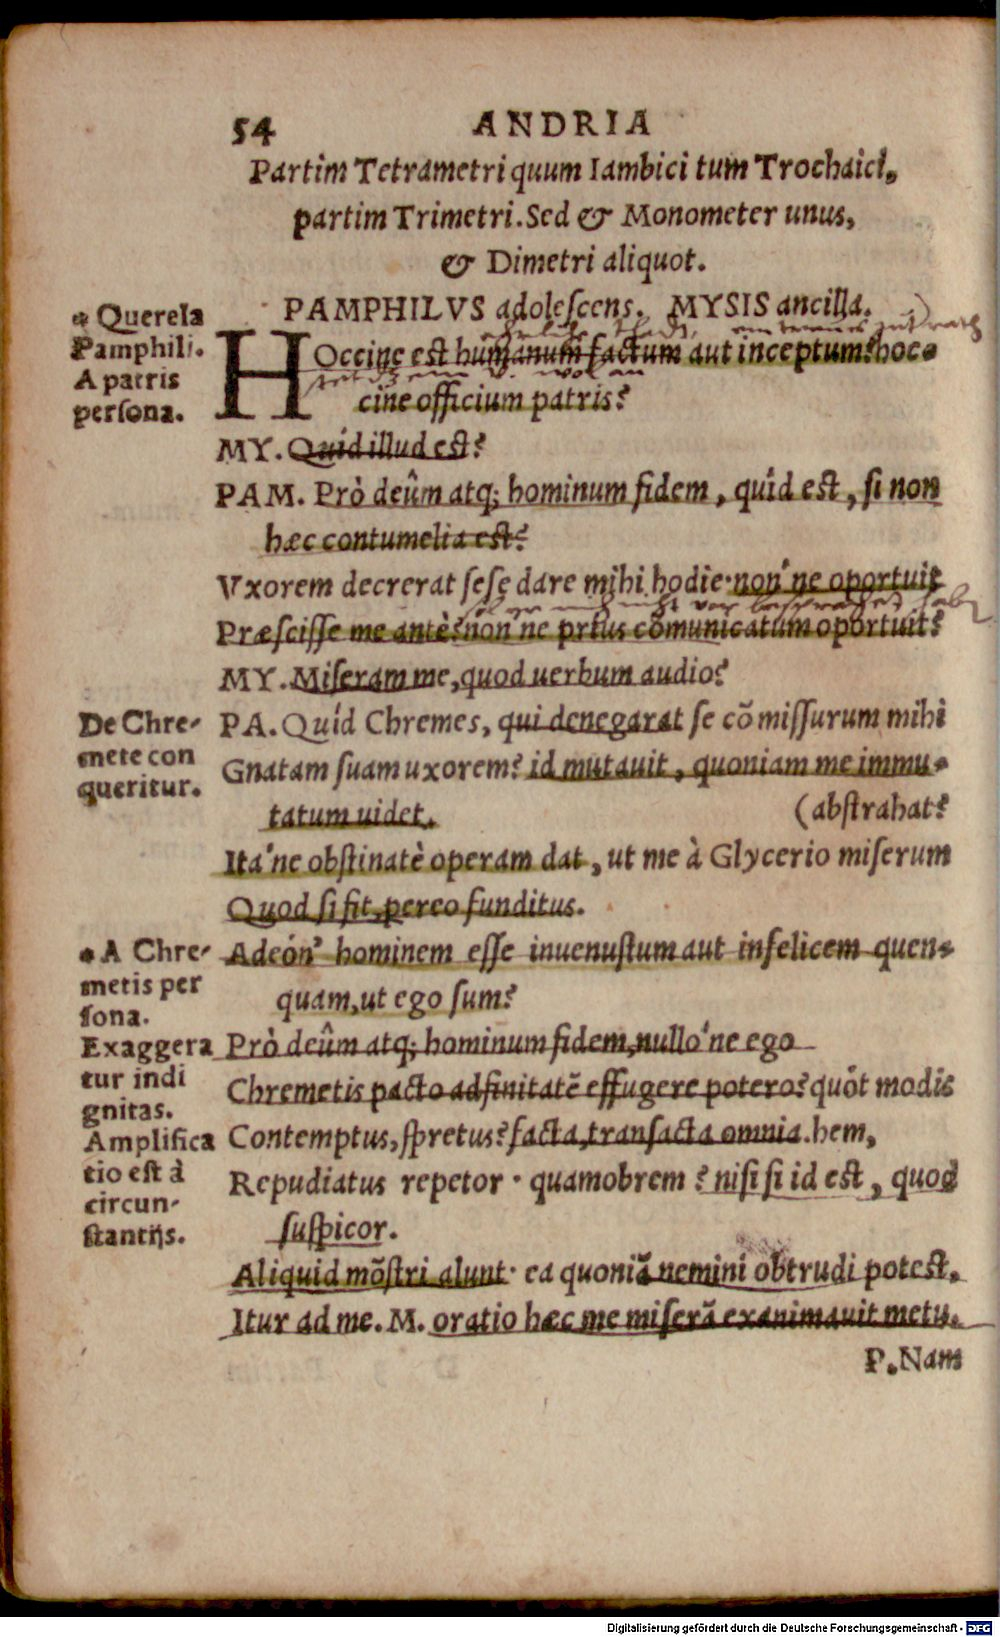 54 ANDRIA
Partim Tetrametri quum Iambici tum Trochaici,
partim Trimetri. Sed & Monometer unus,
& Dimetri aliquot.
PAMPHILVS adolescens. MYSIS ancilla.
* Querela
Pamphili.
A patris
persona.
HOccine est humanum factum aut inceptum? hoc-
cine officium patris?
MY. Quid illud est?
PAM. Prò deûm atq; hominum fidem, quid est, si non
hæc contumelia est?
Vxorem decrerat sese dare mihi hodie· non'ne oportuit
Præscisse me antè? non'ne prius cõmunicatum oportuit?
MY. Miseram me, quod uerbum audio?
De Chre-
mete con
queritur.
PA. Quíd Chremes, qui denegarat se cõmissurum mihi
Gnatam suam uxorem? id mutauit, quoniam me immu-
tatum uidet.
(abstrahat?
Ita'ne obstinatè operam dat, ut me à Glycerio miserum
Quod si fit, pereo funditus.
* A Chre-
metis per
sona.
Adeón' hominem esse inuenustum aut infelicem quen-
quam, ut ego sum?
Exaggera
tur indi
gnitas.
Prò deûm atq; hominum fidem, nullo'ne ego
Chremetis pacto adfinitatẽ effugere potero? quôt modis
Amplifica
tio est à
circun-
stantijs.
Contemptus, spretus? facta, transacta omnia. hem,
Repudiatus repetor · quamobrem? nisi si id est, quod
suspicor.
Aliquid mõstri alunt· ea quoniã nemini obtrudi potest,
Itur ad me. M. oratio hæc me miserã exanimauit metu.
P. Nam
Digitalisierung gefördert durch die Deutsche Forschungsgemeinschaft - DFG